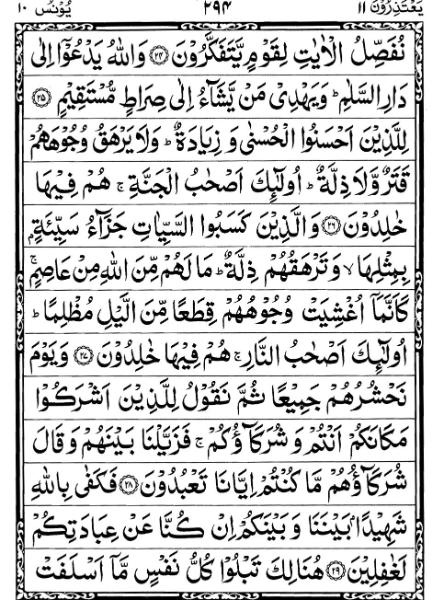 یَعْتَذِرُوْنَ ۱۱ ۲۹۴ یُوْنُس ۱۰
نُفَصِّلُ الْاٰیٰتِ لِقَوْمٍ یَّتَفَكَّرُوْنَ ﴿۲۴﴾ وَاللّٰهُ یَدْعُوْۤا اِلٰی
دَارِ السَّلٰمِ ؕ وَیَهْدِیْ مَنْ یَّشَآءُ اِلٰی صِرَاطٍ مُّسْتَقِیْمٍ ﴿۲۵﴾
لِلَّذِیْنَ اَحْسَنُوا الْحُسْنٰی وَ زِیَادَةٌ ؕ وَلَا یَرْهَقُ وُجُوْهَهُمْ
قَتَرٌ وَّلَا ذِلَّةٌ ؕ اُولٰٓئِكَ اَصْحٰبُ الْجَنَّةِ ۚ هُمْ فِیْهَا
خٰلِدُوْنَ ﴿۲۶﴾ وَالَّذِیْنَ كَسَبُوا السَّیِّاٰتِ جَزَآءُ سَیِّئَةٍۭ
بِمِثْلِهَا ۙ وَتَرْهَقُهُمْ ذِلَّةٌ ؕ مَا لَهُمْ مِّنَ اللّٰهِ مِنْ عَاصِمٍ ۚ
كَاَنَّمَاۤ اُغْشِیَتْ وُجُوْهُهُمْ قِطَعًا مِّنَ الَّیْلِ مُظْلِمًا ؕ
اُولٰٓئِكَ اَصْحٰبُ النَّارِ ۚ هُمْ فِیْهَا خٰلِدُوْنَ ﴿۲۷﴾ وَیَوْمَ
نَحْشُرُهُمْ جَمِیْعًا ثُمَّ نَقُوْلُ لِلَّذِیْنَ اَشْرَكُوْا
مَكَانَكُمْ اَنْتُمْ وَ شُرَكَآؤُكُمْ ۚ فَزَیَّلْنَا بَیْنَهُمْ وَقَالَ
شُرَكَآؤُهُمْ مَّا كُنْتُمْ اِیَّانَا تَعْبُدُوْنَ ﴿۲۸﴾ فَكَفٰی بِاللّٰهِ
شَهِیْدًۢا بَیْنَنَا وَ بَیْنَكُمْ اِنْ كُنَّا عَنْ عِبَادَتِكُمْ
لَغٰفِلِیْنَ ﴿۲۹﴾ هُنَالِكَ تَبْلُوْا كُلُّ نَفْسٍ مَّاۤ اَسْلَفَتْ